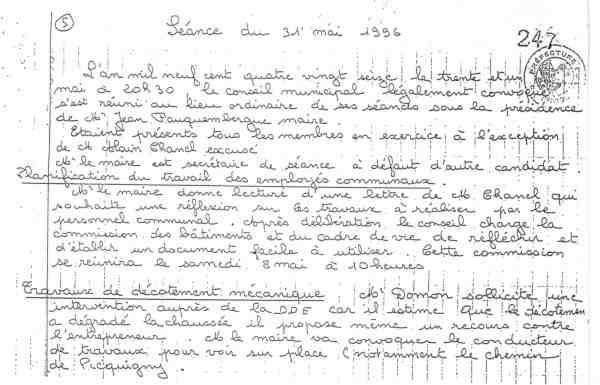 5
Séance du 31 mai 1996
247
PRÉFECTURE
L'an mil neuf cent quatre vingt seize le trente et un
mai à 20h30 le conseil municipal légalement convoqué
s'est réuni au lieu ordinaire de ses séances sous la présidence
de Mr Jean Fauquembergue maire.
Etaient présents tous les membres en exercice à l'exception
de M Alain Chanel excusé
Mr le maire est secrétaire de séance à défaut d'autre candidat.
Planification du travail des employés communaux.
Mr le maire donne lecture d'une lettre de M Chanel qui
souhaite une réflexion sur les travaux à réaliser par le
personnel communal. Après délibération le conseil charge la
commission des bâtiments et du cadre de vie de réfléchir et
d'établir un document facile à utiliser. Cette commission
se réunira le samedi 8 mai à 10 heures
Travaux de décotement mécanique Mr Domon sollicite une
intervention auprès de la DDE car il estime que le décotement
a dégradé la chaussée il propose même un recours contre
l'entrepreneur. M le maire va convoquer le conducteur
de travaux pour voir sur place (notamment le chemin
de Picquigny.